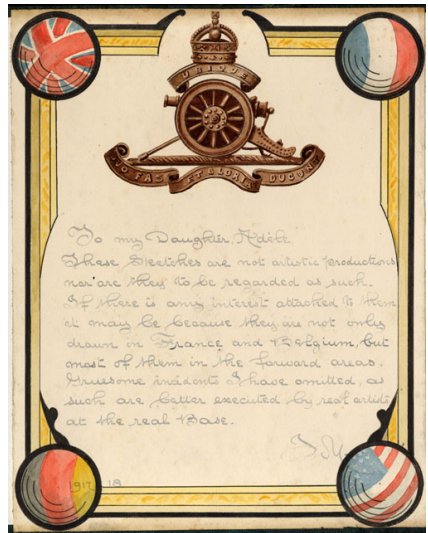 UBIQUE
QUO FAS ET GLORIA DUCUNT
To my Daughter, Adèle
These Sketches are not artistic productions
nor are they to be regarded as such.
If there is any interest attached to them
it may be because they are not only
drawn in France and Belgium, but
most of them in the forward areas.
Gruesome incidents I have omitted, as
such are better executed by real artists
at the real Base.
1917 18